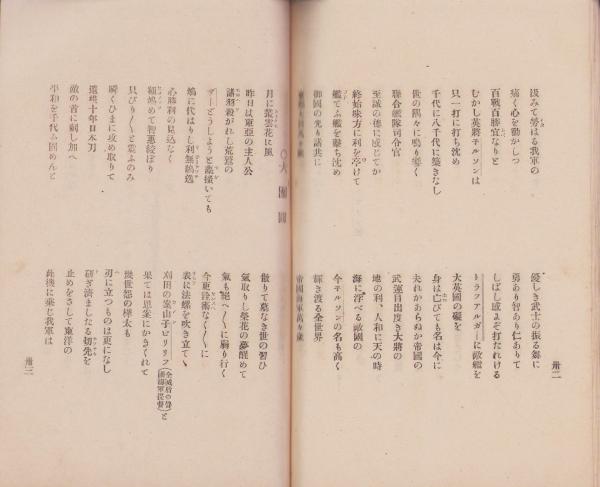 汲みて勞はる我軍の
優しき武士の振る舞に
痛く心を動かしつ
勇あり智あり仁ありて
百戰百勝宜なりと
しばし感にぞ打たれける
むかし英將ネルソンは
トラフアルガーに敵艦を
只一打に打ち沈め
大英國の礎を
千代に八千代に築きなし
身は亡びても名は今に
世の隅々に鳴り響く
夫れかあらぬか帝國の
聯合艦隊司令官
武運目出度き大將の
至誠の德に感じてか
地の利、人和に天の時
終始味方に利を亭けて
海に浮べる敵國の
艦てふ艦を擊ち沈め
今ネルソンの名も高く
御國の光り諸共に
輝き渡る全世界
帝國海軍萬々歲
卅二
○大團圓
月に叢雲花に風
散りて墓なき世の習ひ
昨日は東亞の主人公
氣取りし榮花の夢醒めて
諸羽殺がれし荒鷲の
氣も絕へ〱に翔り行く
ザーどうしようと藻搔いても
今更詮術なく〱に
鳩に代はりし利無鴆逸
表に法螺を吹き立て丶
必勝利の見込なく
刈田の案山子ロリリフ
額鳩めて智惠絞ぼり
果ては思案にかきくれて
具びり〱と震ふのみ
幾世怨の樺太も
瞬くひまに攻め取りて
刃に立つものは更になし
遺恨十年日本刀
研ぎ濟ましたる切先を
敵の首に刺し加へ
止めをさして東洋の
平和を千代ふ固めんと
此機に乘じ我軍は
卅三